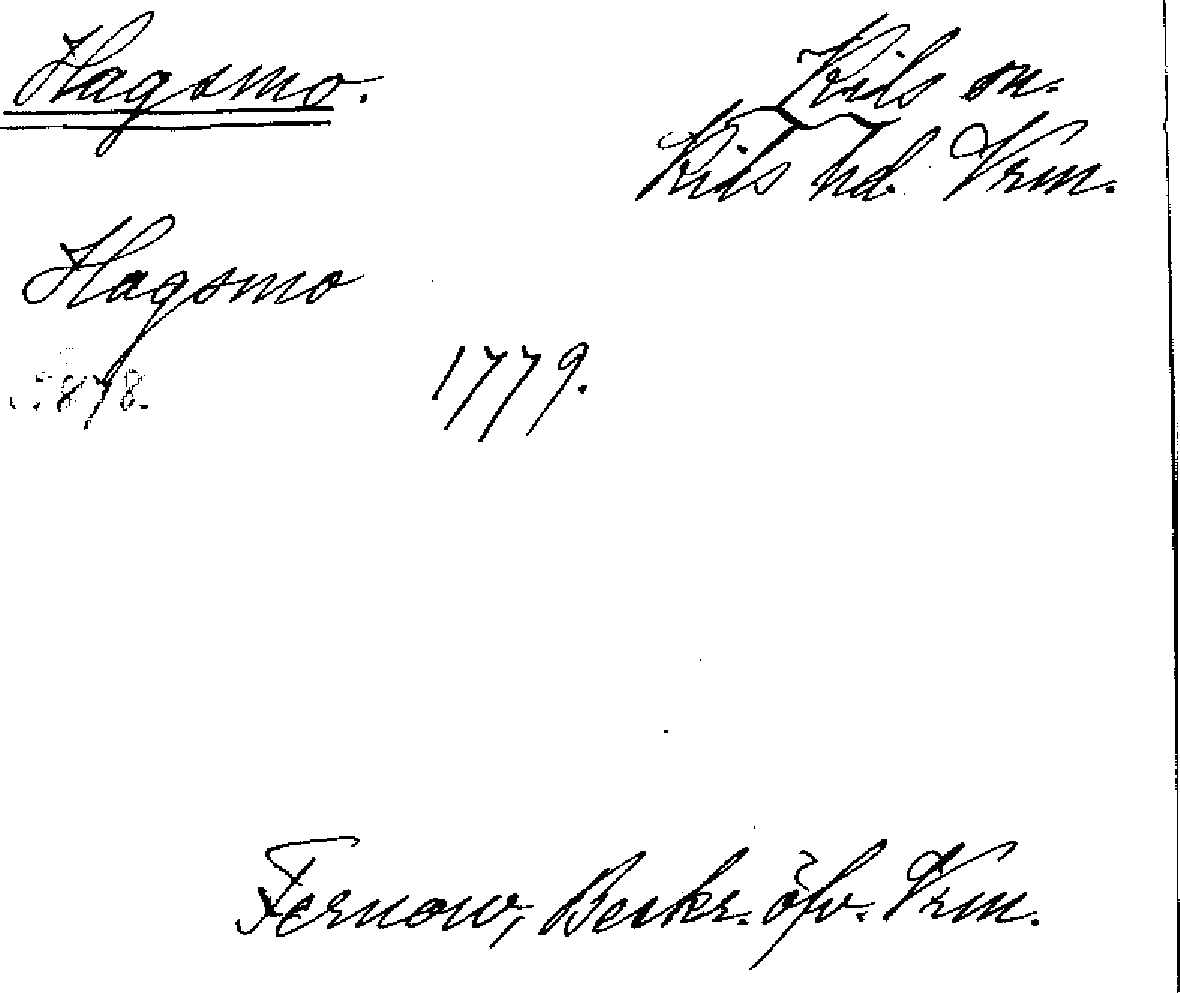 Hagsmo.
Kils sn.
Kils hd. Vrm.
Hagsmo
S. 878.
1779.
Fernow, Beskr. öfv. Vrm.